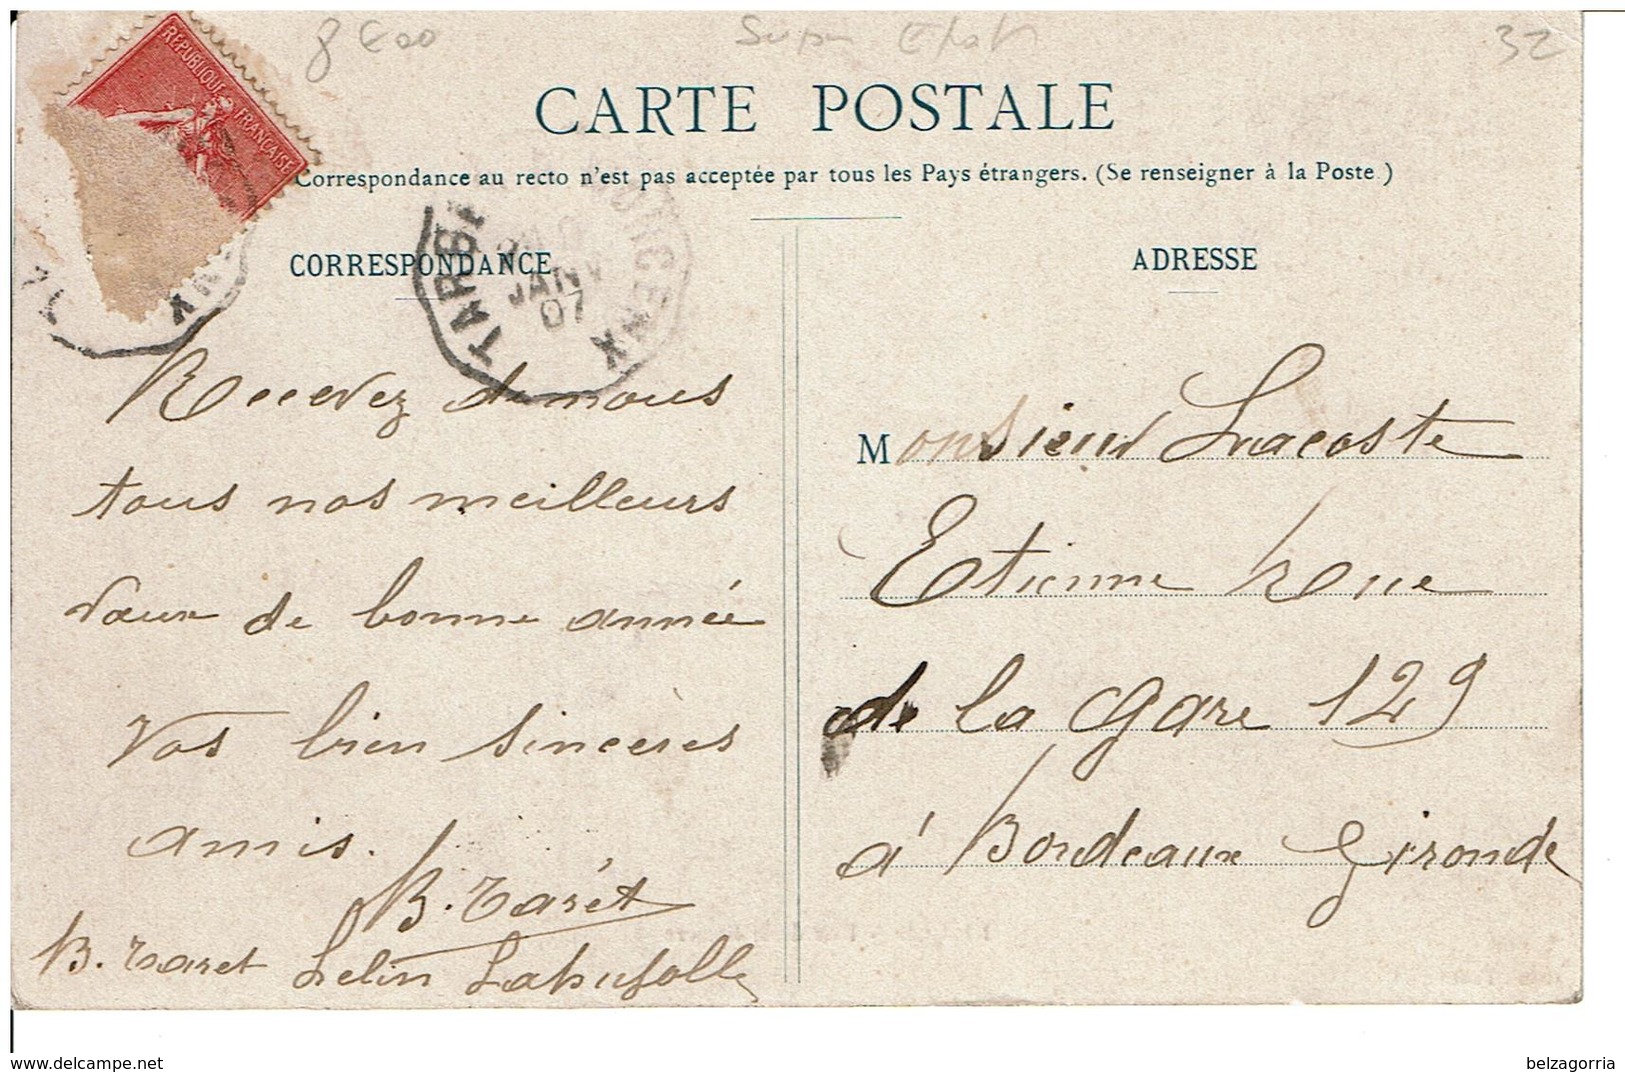 8 €00
Super Etat
32
RÉPUBLIQUE FRANÇAISE
CARTE POSTALE
Correspondance au recto n'est pas acceptée par tous les Pays étrangers. (Se renseigner à la Poste.)
CORRESPONDANCE
ADRESSE
JANV
07
Recevez de nous
tous nos meilleurs
vœux de bonne année
Vos bien sincères
amis.
B. Taret
B. Taret
Monsieur Lacoste
Etienne Rue
de la Gare 129
à Bordeaux Gironde
www.delcampe.net
belzagorria